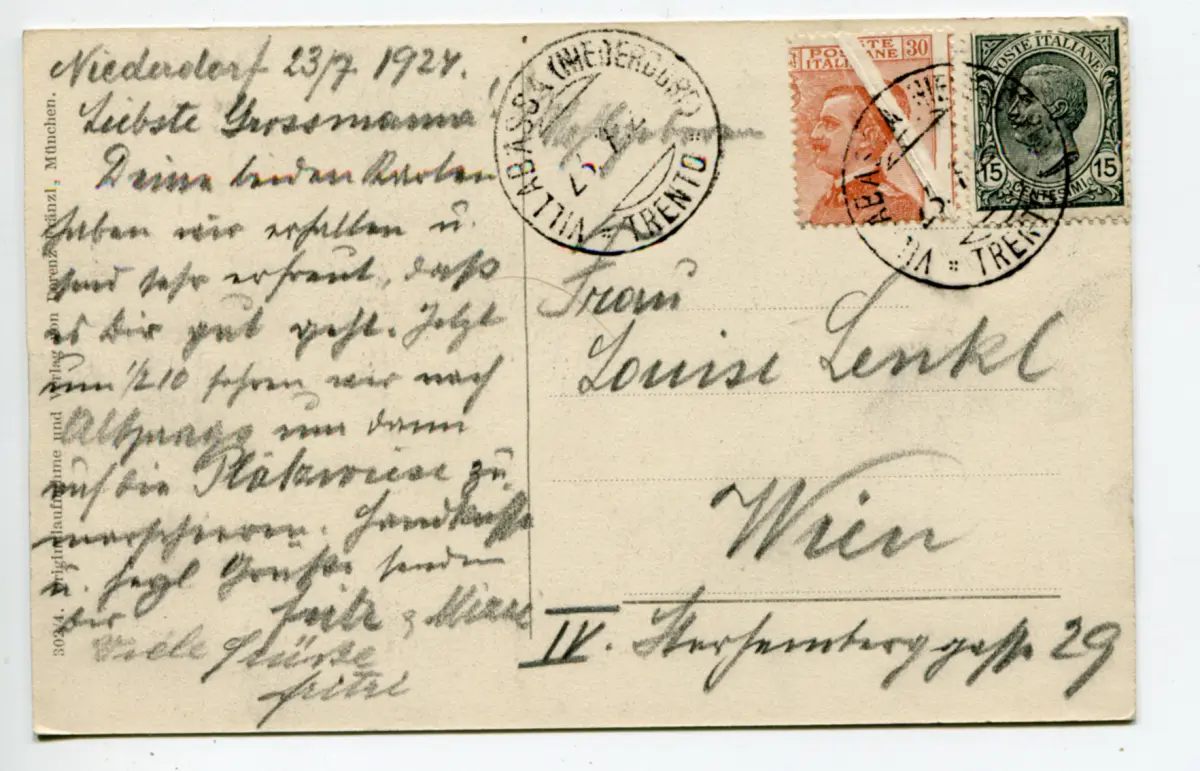 Niederdorf 23/7 1924.
Liebste Grossmama!
Deine beiden Karten
haben wir erhalten u.
sind sehr erfreut, daß
es Dir gut geht. Jetzt
um 1/2 10 fahren wir nach
um dann
auf die Plätzwiese zu
marschieren. Handküsse
u. herzl Grüße senden
Dir Fritz & Mizzi
Viele Grüsse
Fritzi
3024. Originalaufnahme und Verlag von Lorenz Fränzl, München.
VILLABASSA (NIEDERDORF)
TRENTO
POSTE ITALIANE 30
POSTE ITALIANE
15 CENTESIMI 15
TRENTO
Frau
Louise Lenkl
Wien
IV. Starhemberggasse 29